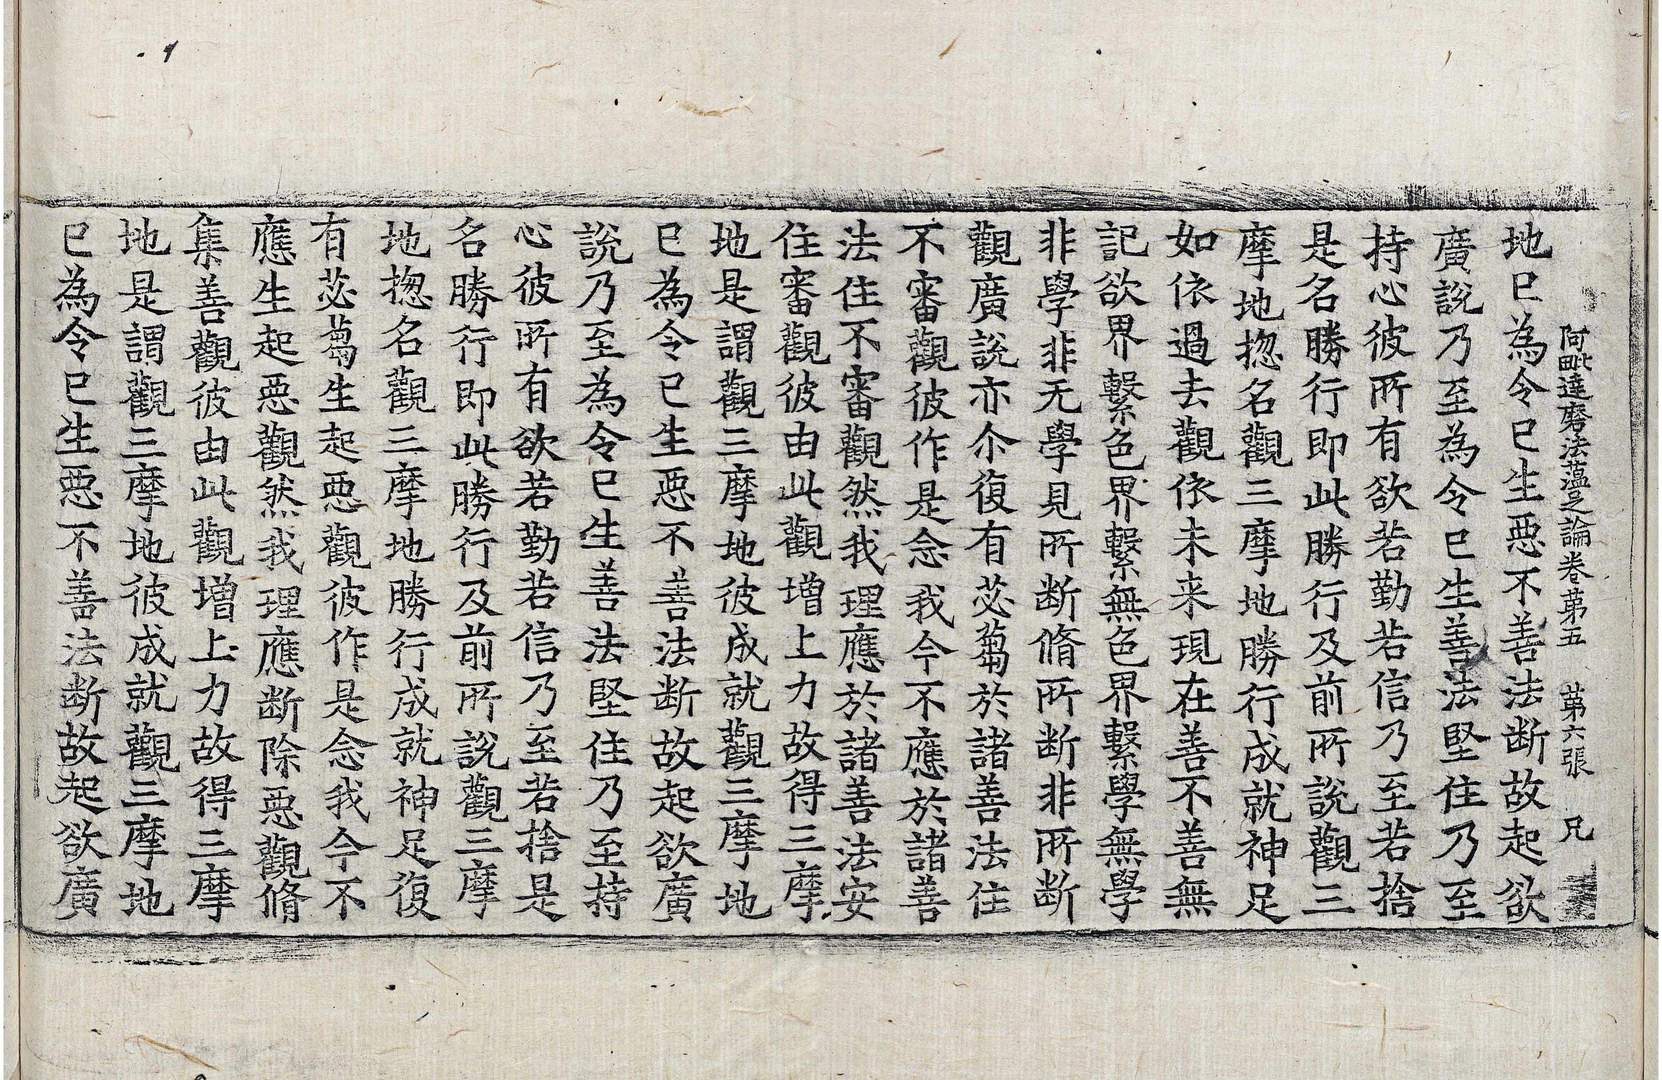 阿毗達磨法蘊足論卷第五 第六張 兄
地已為令已生惡不善法断故起欲
廣說乃至為令已生善法堅住乃至
持心彼所有欲若勤若信乃至若捨
是名勝行即此勝行及前所說觀三
摩地揔名觀三摩地勝行成就神足
如依過去觀依未来現在善不善無
記欲界繫色界繫無色界繫學無學
非學非无學見所断脩所断非所断
觀廣說亦尒復有苾蒭於諸善法住
不審觀彼作是念我今不應於諸善
法住不審觀然我理應於諸善法安
住審觀彼由此觀增上力故得三摩
地是謂觀三摩地彼成就觀三摩地
已為令已生惡不善法断故起欲廣
說乃至為令已生善法堅住乃至持
心彼所有欲若勤若信乃至若捨是
名勝行即此勝行及前所說觀三摩
地揔名觀三摩地勝行成就神足復
有苾蒭生起惡觀彼作是念我今不
應生起惡觀然我理應断除惡觀脩
集善觀彼由此觀增上力故得三摩
地是謂觀三摩地彼成就觀三摩地
已為令已生惡不善法断故起欲廣